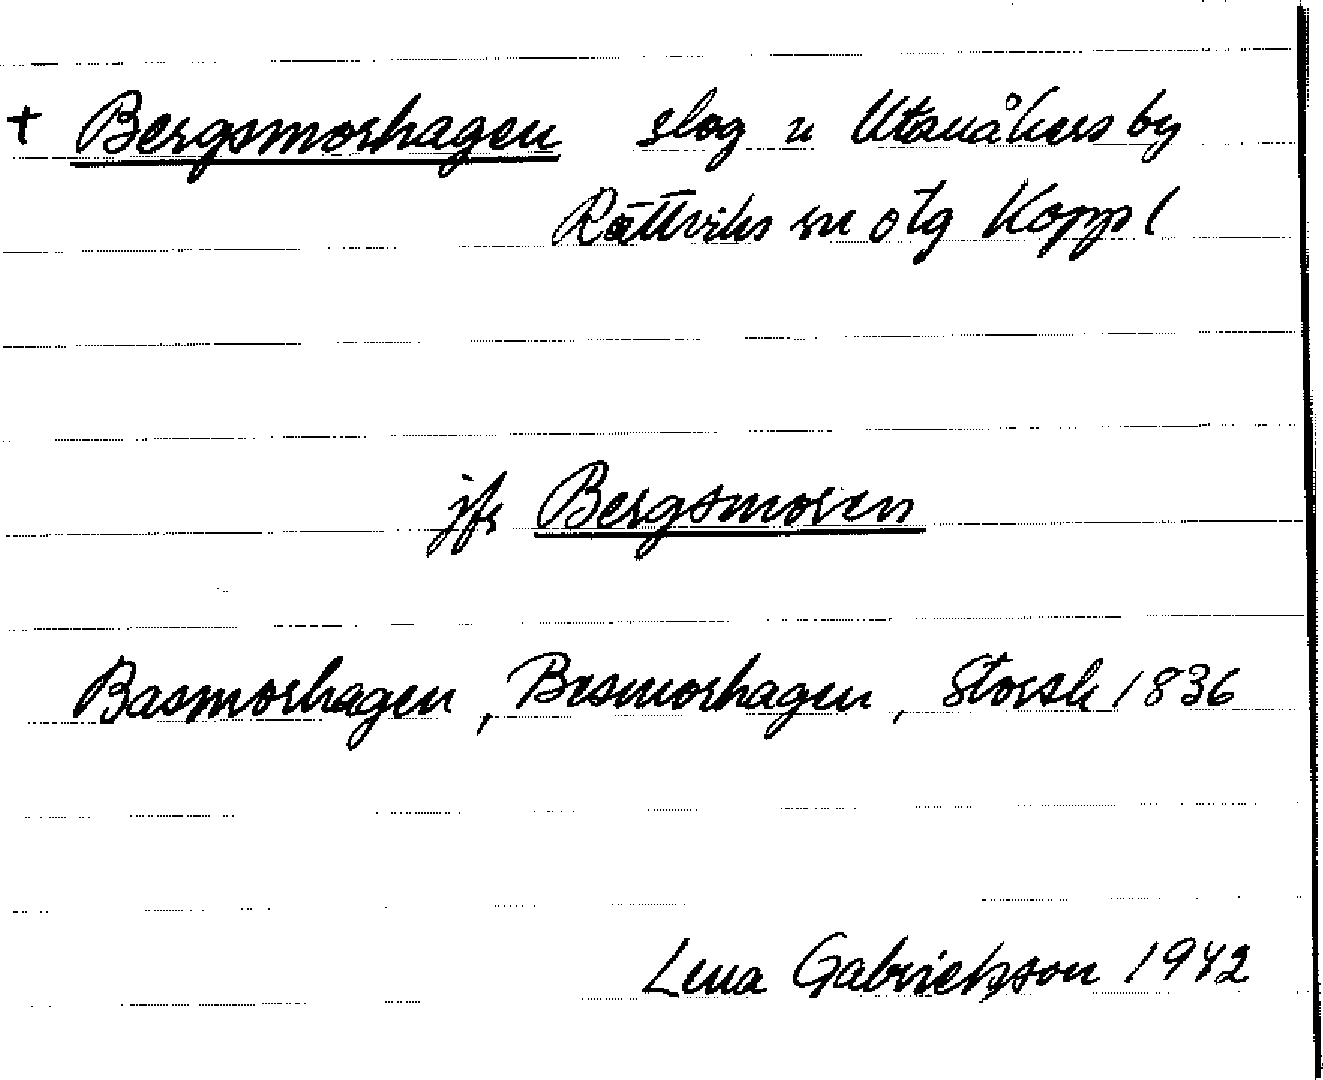 + Bergsmorhagen slog u Utanåkers by
Rättviks sn o tg Koppl
jfr Bergsmoren
Basmorhagen, Besmorhagen, Storsk 1836
Lena Gabrielsson 1942